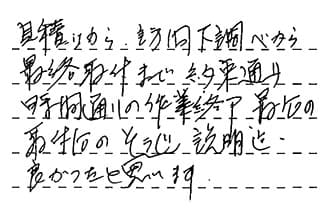 見積りから、訪問下調べから
最終取付まで 約束通り
時間通りの作業終了 最后の
取付后のそうじ 説明迄.
良かったと思います.